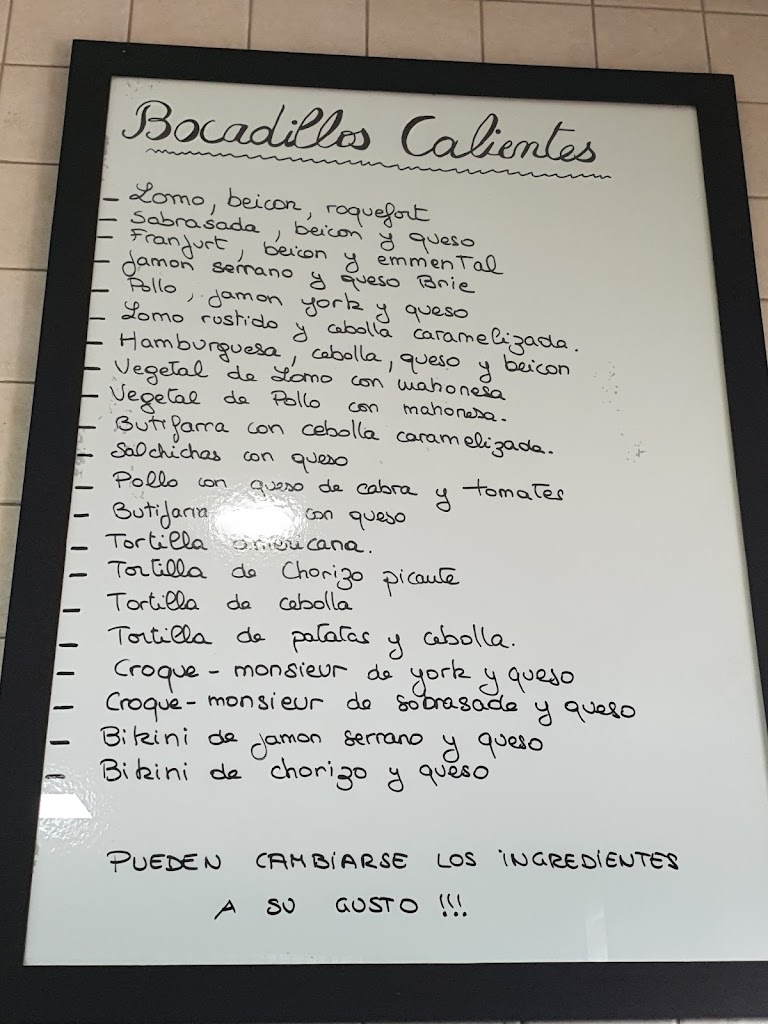 Bocadillos Calientes
- Lomo, beicon, roquefort
- Sobrasada, beicon y queso
- Franfurt, beicon y emmental
- Jamon serrano y queso Brie
- Pollo, jamon york y queso
- Lomo rustido y cebolla caramelizada.
- Hamburguesa, cebolla, queso y beicon
- Vegetal de Lomo con mahonesa
- Vegetal de Pollo con mahonesa.
- Butifarra con cebolla caramelizada.
- Salchichas con queso
- Pollo con queso de cabra y tomates
- Butifarra con queso
- Tortilla americana.
- Tortilla de Chorizo picante
- Tortilla de cebolla
- Tortilla de patatas y cebolla.
- Croque-monsieur de york y queso
- Croque-monsieur de sobrasada y queso
- Bikini de jamon serrano y queso
- Bikini de chorizo y queso
PUEDEN CAMBIARSE LOS INGREDIENTES
A SU GUSTO !!!